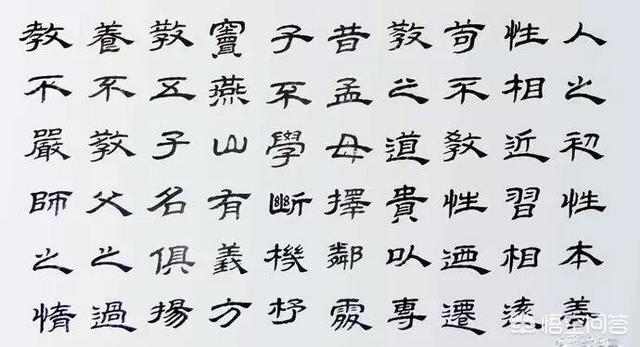 人之初性本善
性相近習相遠
苟不教性迺遷
教之道貴以專
昔孟母擇鄰處
子不學斷機杼
竇燕山有義方
教五子名俱揚
養不教父之過
教不嚴師之惰
悟空问答